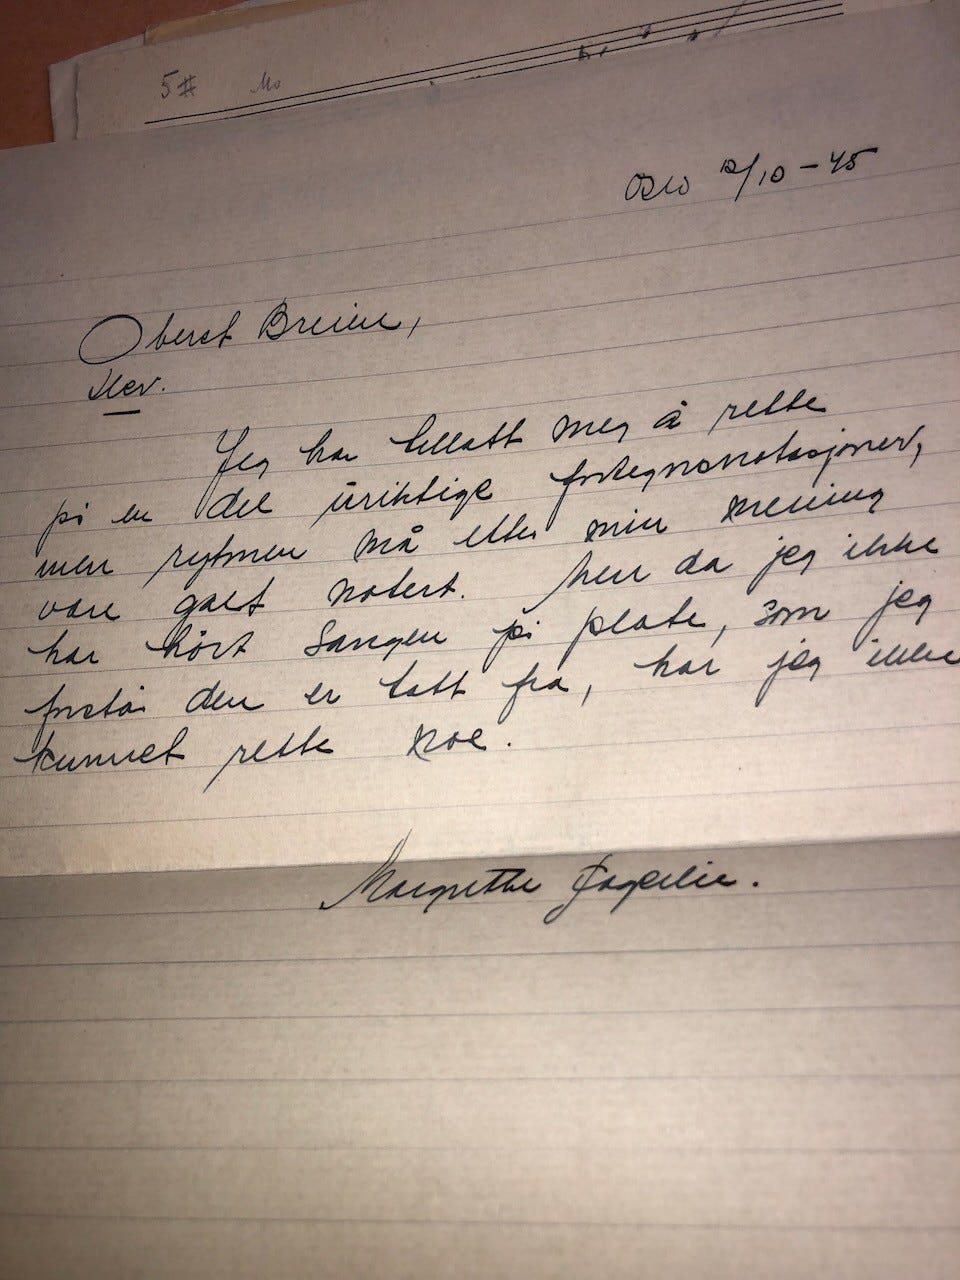 5# Mo
Oslo 12/10-45
Oberst Breien,
Her.
Jeg har tillatt meg å rette
på en del uriktige fortegnsnotasjoner,
men rytmen må etter min mening
være galt notert. Men da jeg ikke
har hørt sangen på plate, som jeg
forstår den er tatt fra, har jeg ikke
kunnet rette noe.
Margrethe